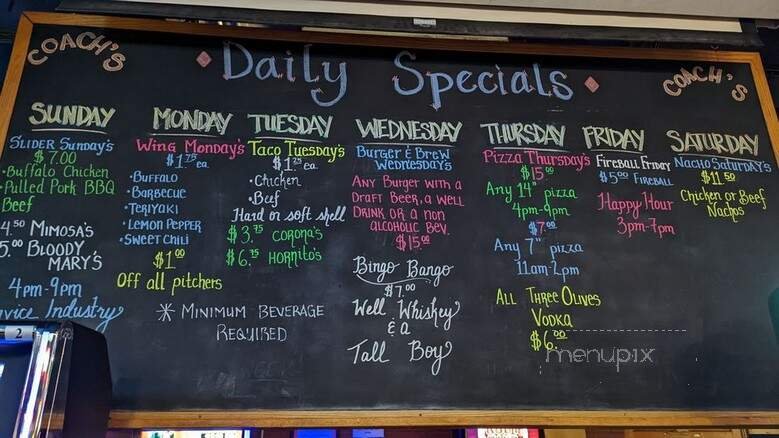 COACH'S
Daily Specials
COACH'S
SUNDAY
SLIDER SUNDAY'S
$7.00
•Buffalo Chicken
•Pulled Pork BBQ
Beef
4.50 MIMOSA'S
5.00 BLOODY
MARY'S
4pm-9pm
Industry
MONDAY
WING MONDAY'S
$1.75 ea
•BUFFALO
•BARBECUE
•TERIYAKI
•LEMON PEPPER
•SWEET CHILI
$1.00
Off all pitchers
TUESDAY
TACO TUESDAY'S
$1.75 ea
•Chicken
•Beef
Hard or soft shell
$3.75 CORONA'S
$6.75 HORNITO'S
* MINIMUM BEVERAGE
REQUIRED
WEDNESDAY
BURGER & BREW
WEDNESDAY'S
ANY BURGER WITH A
DRAFT BEER, A WELL
DRINK OR A NON
ALCOHOLIC BEV.
$15.00
Bingo Bango
$7.00
Well Whiskey
& a
Tall Boy
THURSDAY
PIZZA THURSDAY'S
$15.00
Any 14" pizza
4pm-9pm
$7.00
Any 7" pizza
11am-2pm
ALL THREE OLIVES
VODKA
$6.00
FRIDAY
FIREBALL FRIDAY
$5.00 FIREBALL
Happy Hour
3pm-7pm
SATURDAY
NACHO SATURDAY'S
$11.50
Chicken or Beef
Nachos
menupix
2